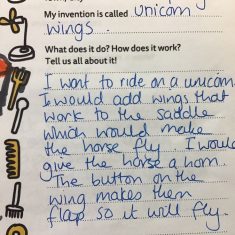 My invention is called unicorn
wings.
What does it do? How does it work?
Tell us all about it!
I want to ride on a unicorn.
I would add wings that
work to the saddle
which would make
the horse fly. I would
give the horse a horn.
The button on the
wing makes them
flap so it will fly.